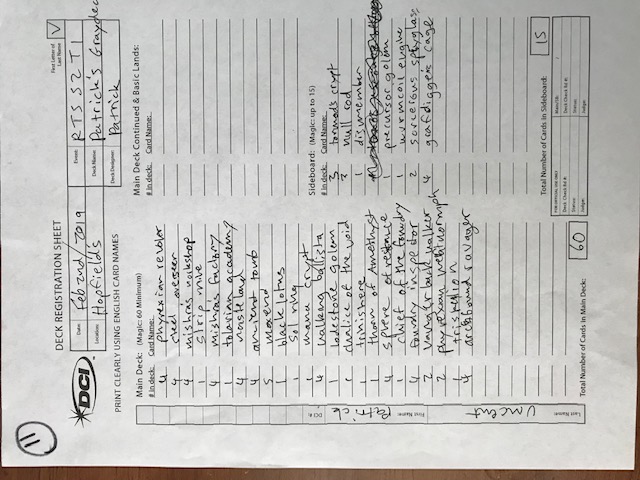 11
DECK REGISTRATION SHEET
First Letter of
Last Name
V
DCI
Date: Feb 2nd / 2019
Event: RTS S2 T1
Location: Hopfield's
Deck Name: Patrick's Graydec
Deck Designer: Patrick
PRINT CLEARLY USING ENGLISH CARD NAMES
Main Deck: (Magic: 60 Minimum)
# in deck: Card Name:
4 phyrexian revoker
4 steel overseer
4 mishra's workshop
1 strip mine
4 mishra's factory
1 tolarian academy
4 wasteland
4 ancient tomb
5 moxend
1 black lotus
1 Sol ring
1 mana crypt
4 walking ballista
1 lodestone golem
1 chalice of the void
1 trinishere
1 thorn of Amethyst
4 sphere of resistance
1 chief of the foundry
4 foundry inspector
2 vanger back walker
2 phyrexian
1 triskelion
4 arcbound ravager
Total Number of Cards in Main Deck: 60
Main Deck Continued & Basic Lands:
# in deck: Card Name:
Sideboard: (Magic: up to 15)
# in deck: Card Name:
3 tormod's crypt
3 null rod
1 dismember
1 precursor golem
1 wurmcoil engine
2 sorcerous spyglass
4 grafdigger's cage
Total Number of Cards in Sideboard: 15
FOR OFFICIAL USE ONLY
Main/SB: /
Deck Check Rd #:
Deck Check Rd #:
Status:
Status:
Judge:
Judge:
DCI #:
First Name: Patrick
Last Name: Vincent